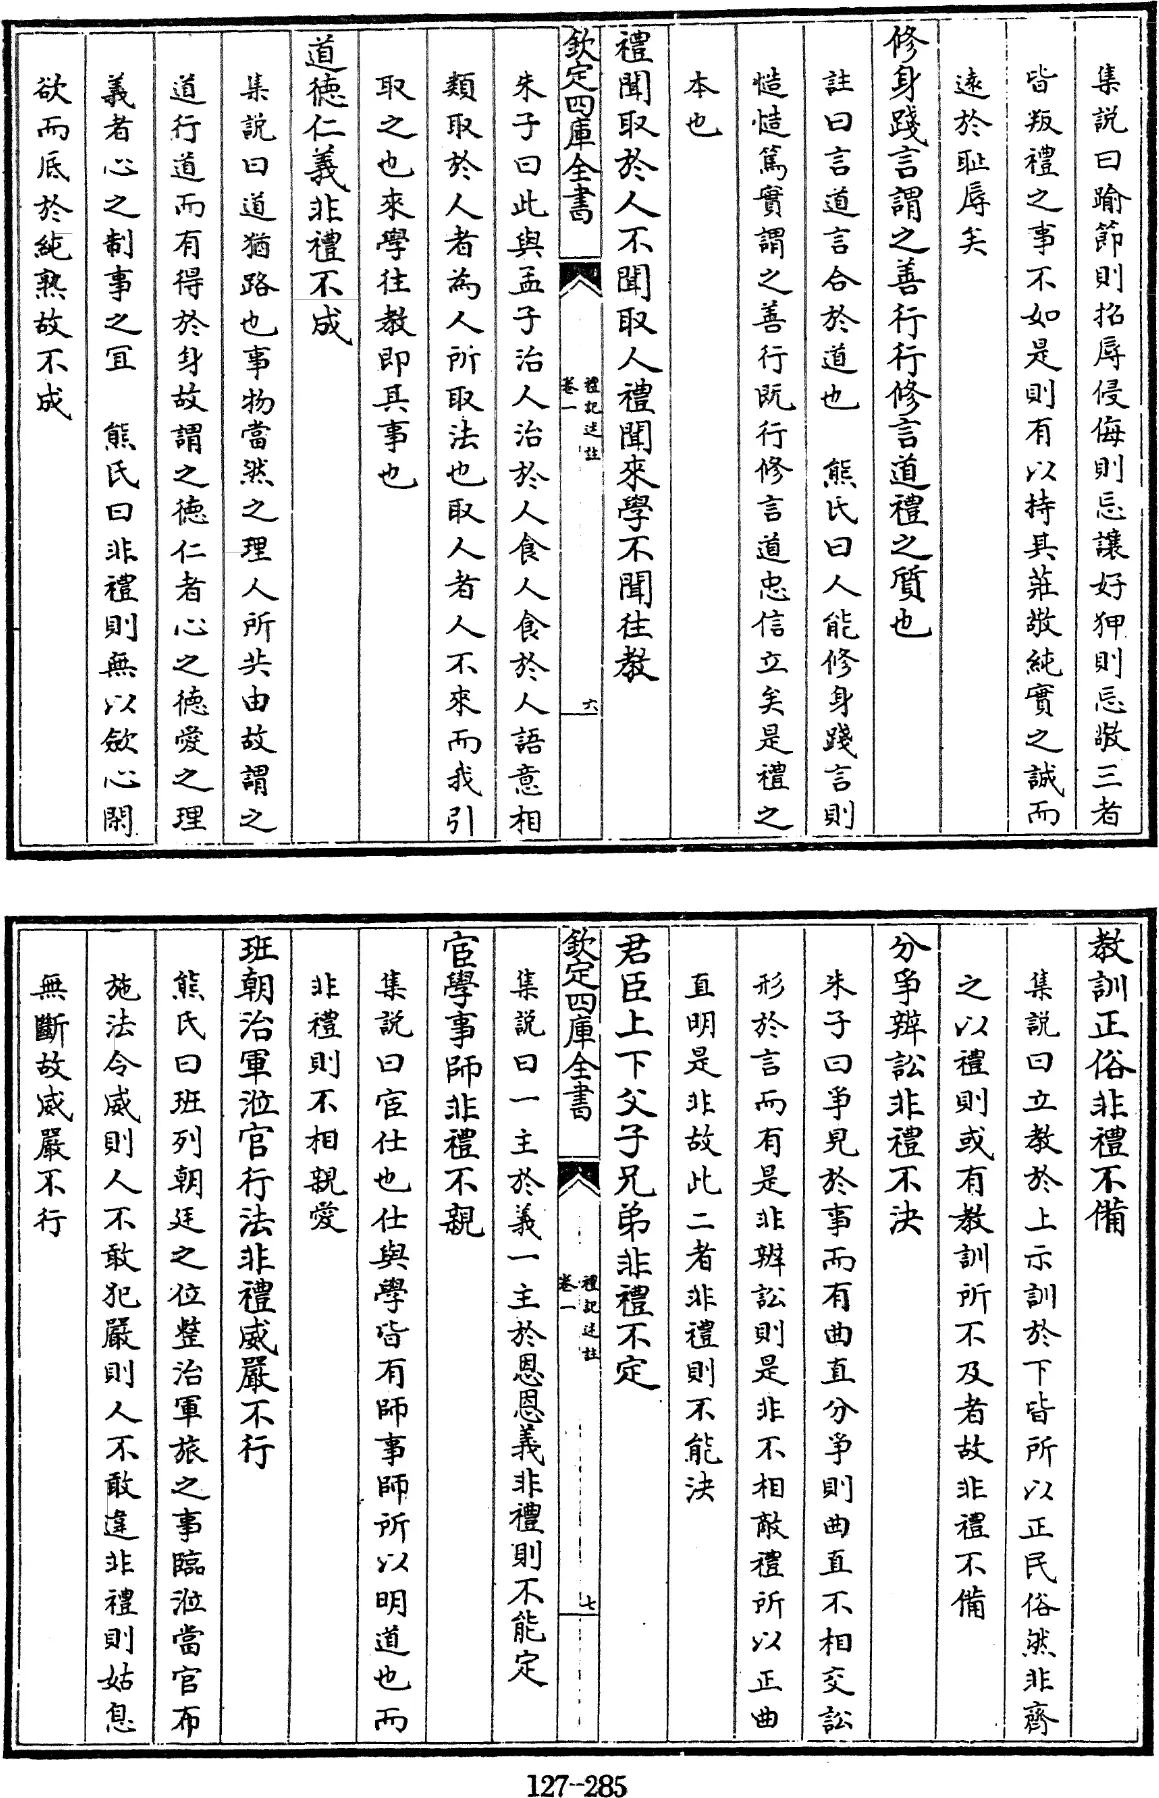 集説曰踰節則招辱侵侮則忘讓好狎則忘敬三者
皆叛禮之事不如是則有以持其莊敬純實之誠而
逺於耻辱矣
修身踐言謂之善行行修言道禮之質也
註曰言道言合於道也　熊氏曰人能修身踐言則
慥慥篤實謂之善行既行修言道忠信立矣是禮之
本也
禮聞取於人不聞取人禮聞來學不聞往教
欽定四庫全書
禮記述註
卷一
六
朱子曰此與孟子治人治於人食人食於人語意相
類取於人者為人所取法也取人者人不來而我引
取之也來學往教即其事也
道德仁義非禮不成
集説曰道猶路也事物當然之理人所共由故謂之
道行道而有得於身故謂之德仁者心之德愛之理
義者心之制事之宜　熊氏曰非禮則無以斂心閑
欲而底於純熟故不成
教訓正俗非禮不備
集説曰立教於上示訓於下皆所以正民俗然非齊
之以禮則或有教訓所不及者故非禮不備
分爭辨訟非禮不決
朱子曰爭見於事而有曲直分爭則曲直不相交訟
形於言而有是非辨訟則是非不相敵禮所以正曲
直明是非故此二者非禮則不能決
君臣上下父子兄弟非禮不定
欽定四庫全書
禮記述註
卷一
七
集説曰一主於義一主於恩恩義非禮則不能定
宦學事師非禮不親
集説曰宦仕也仕與學皆有師事師所以明道也而
非禮則不相親愛
班朝治軍涖官行法非禮威嚴不行
熊氏曰班列朝廷之位整治軍旅之事臨涖當官布
施法令威則人不敢犯嚴則人不敢違非禮則姑息
無斷故威嚴不行
127-285